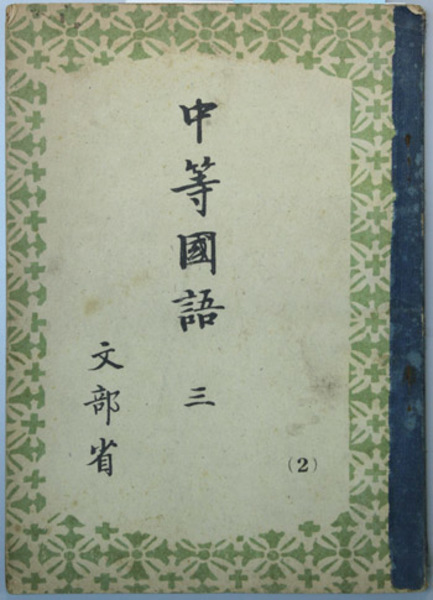 中等國語 三
(2)
文部省